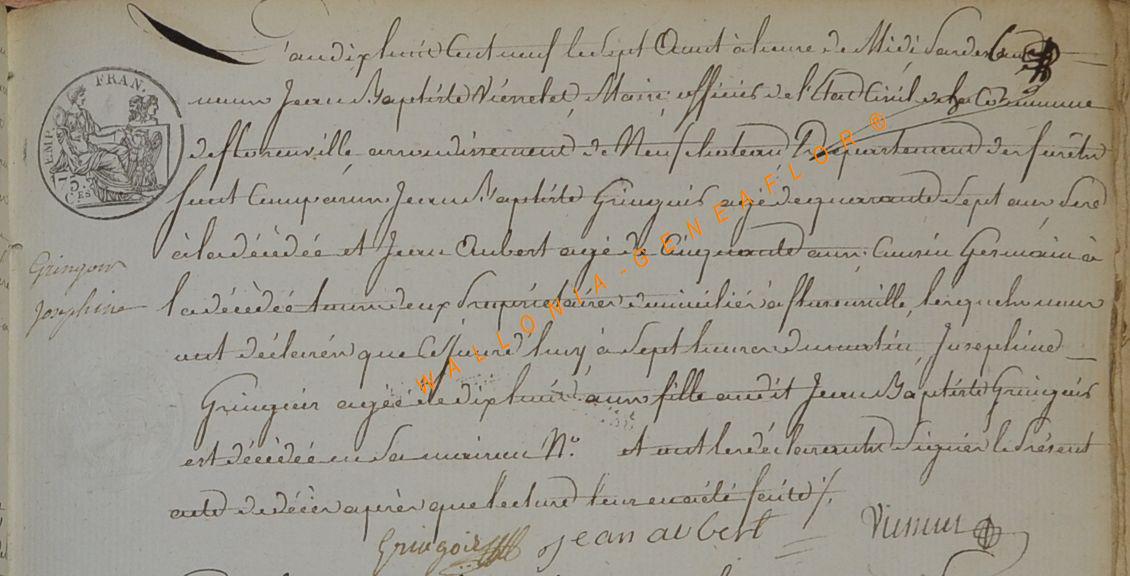 L'an dix huit Cent neuf le sept Aout à heure de Midi Pardevant
nous Jean Baptiste Viennet Maire officier de l'Etat Civil de la Commune
de florenville arrondissement de Neufchateau Departement des forêts
sont Comparus Jean Baptiste Gringoir agé de quarante sept ans Pere
à la décédée et Jean Aubert agé de Cinquante ans Cousin Germain à
la décédée tous deux Propriétaires domiciliés à florenville, lesquels nous
ont déclarés que Ce Jourd'huy à sept heures du matin, Josephine
Gringoir agée de dix huit ans fille audit Jean Baptiste Gringoir
est décédée en sa maison No. et ont les déclarants signés le Présent
acte de décès après que lecture leur en a été faite /.
Gringoir jean aubert
Gringoir
Josephine
EMP. FRAN.
75. CES
WALLONIA-GENEAFLOR ®